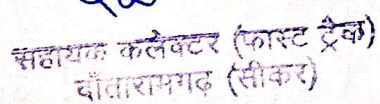 सहायक कलेक्टर (फास्ट ट्रेक)
दाँतारामगढ़ (सीकर)